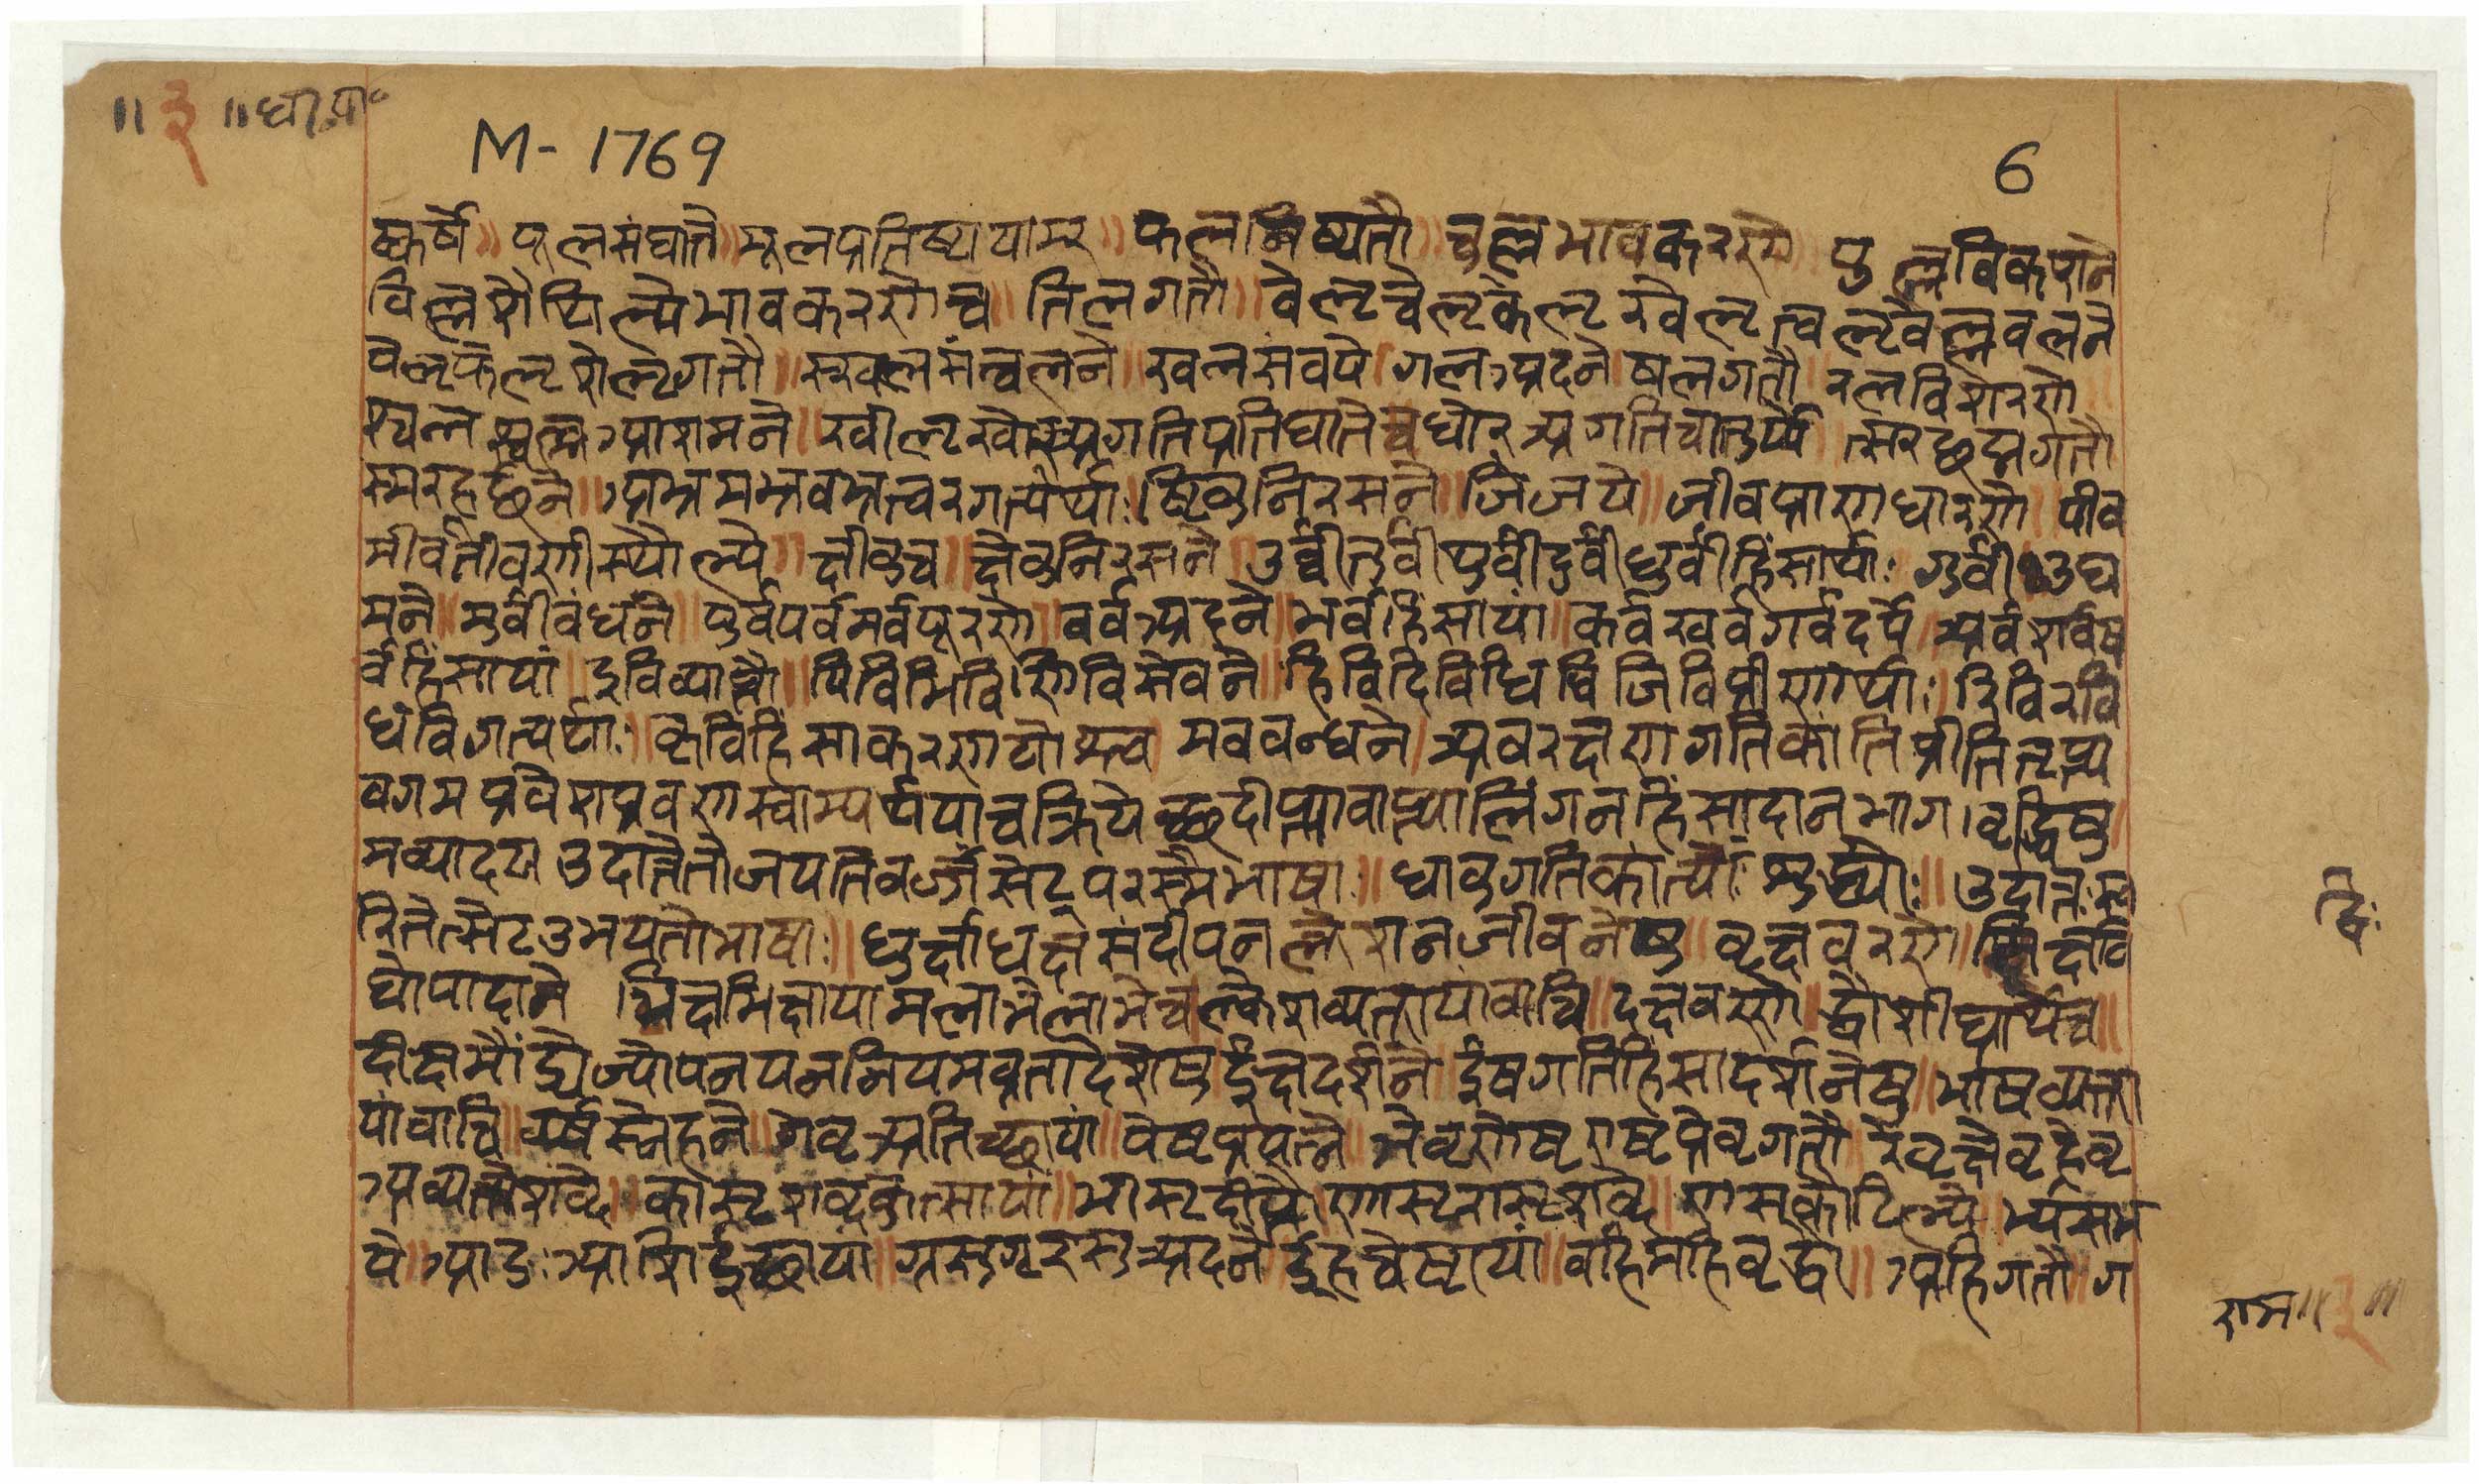 ॥ ३ ॥ धा॰ पा॰
M-1769
6
ष्कर्षे ॥ पूल संघाते ॥ मूल प्रतिष्ठायाम् ॥ फल निष्पतौ ॥ चुल्ल भावकरणे ॥ फुल्ल विकशने
चिल्ल शैथिल्ये भावकरणे च ॥ तिल गतौ ॥ वेलृ चेलृ केलृ खेलृ त्वेलृ वेल्ल चलने
पेलृ फेलृ शेलृ गतौ ॥ स्खल संचलने ॥ खल संचये ॥ गल अदने ॥ षल गतौ ॥ दल विशरणे
श्वल श्वल्ल आशुगमने ॥ खोलृ खोरृ गतिप्रतिघाते ॥ धोरृ गतिचातुर्ये ॥ त्सर छद्मगतौ
क्मर हूर्छने ॥ अभ्र मभ्र वभ्र चर गत्यर्थाः ॥ ष्ठिवु निरसने ॥ जि जये ॥ जीव प्राणधारणे ॥ पीव
मीव तीव णीव स्थौल्ये ॥ क्षीवु च क्षेवु निरसने ॥ उर्वी तुर्वी थुर्वी दुर्वी धुर्वी हिंसार्थाः ॥ गुर्वी उद्य
मने ॥ मुर्वी बंधने ॥ पुर्व पर्व मर्व पूरणे ॥ चर्व अदने ॥ भर्व हिंसायां ॥ कर्व खर्व गर्व दर्पे ॥ अर्व शर्व ष
र्व हिंसायां ॥ इवि व्याप्तौ ॥ पिवि मिवि णिवि सेचने ॥ हिवि दिवि धिवि जिवि प्रीणार्थाः ॥ रिवि रवि
धवि गत्यर्थाः ॥ कृवि हिंसाकरणयोश्च ॥ मव बन्धने ॥ अव रक्षण गति कांति प्रीति तृप्त्य
वगम प्रवेश श्रवण स्वाम्यर्थ याच क्रियेच्छा दीप्त्यवाप्त्यालिंगन हिंसा दान भाग वृद्धिषु
मव्यादय उदात्तेतो जयतिवर्ज्जं सेट् परस्मैभाषाः ॥ धावु गतिशुद्ध्योः ॥ उदात्तः स्व
रितेत् सेट् उभयतोभाषाः ॥ धुक्ष धिक्ष संदीपन क्लेशन जीवनेषु ॥ वृक्ष वरणे ॥ शिक्ष वि
द्योपादाने ॥ भिक्ष भिक्षायामलाभे लाभे च ॥ क्लेश व्यक्तायां वाचि ॥ दक्ष वृद्धौ शीघ्रार्थे च ॥
दीक्ष मौंड्येज्योपनयननियमव्रतादेशेषु ॥ ईक्ष दर्शने ॥ ईष गतिहिंसादर्शनेषु ॥ भाष व्यक्ता
यां वाचि ॥ वर्ष स्नेहने ॥ गेषृ अन्विच्छायां ॥ पेषृ प्रयत्ने ॥ जेषृ णेषृ एषृ प्रेषृ गतौ ॥ रेषृ हेषृ
अव्यक्ते शब्दे ॥ कासृ शब्दकुत्सायां ॥ भासृ दीप्तौ ॥ णासृ रासृ शब्दे ॥ णस कौटिल्ये ॥ भ्यस भ
ये ॥ आङः शसि इच्छायां ॥ ग्रसु ग्लसु अदने ॥ ईह चेष्टायां ॥ वहि महि वृद्धौ ॥ अहि गतौ ॥ ग
राम ॥ ३ ॥